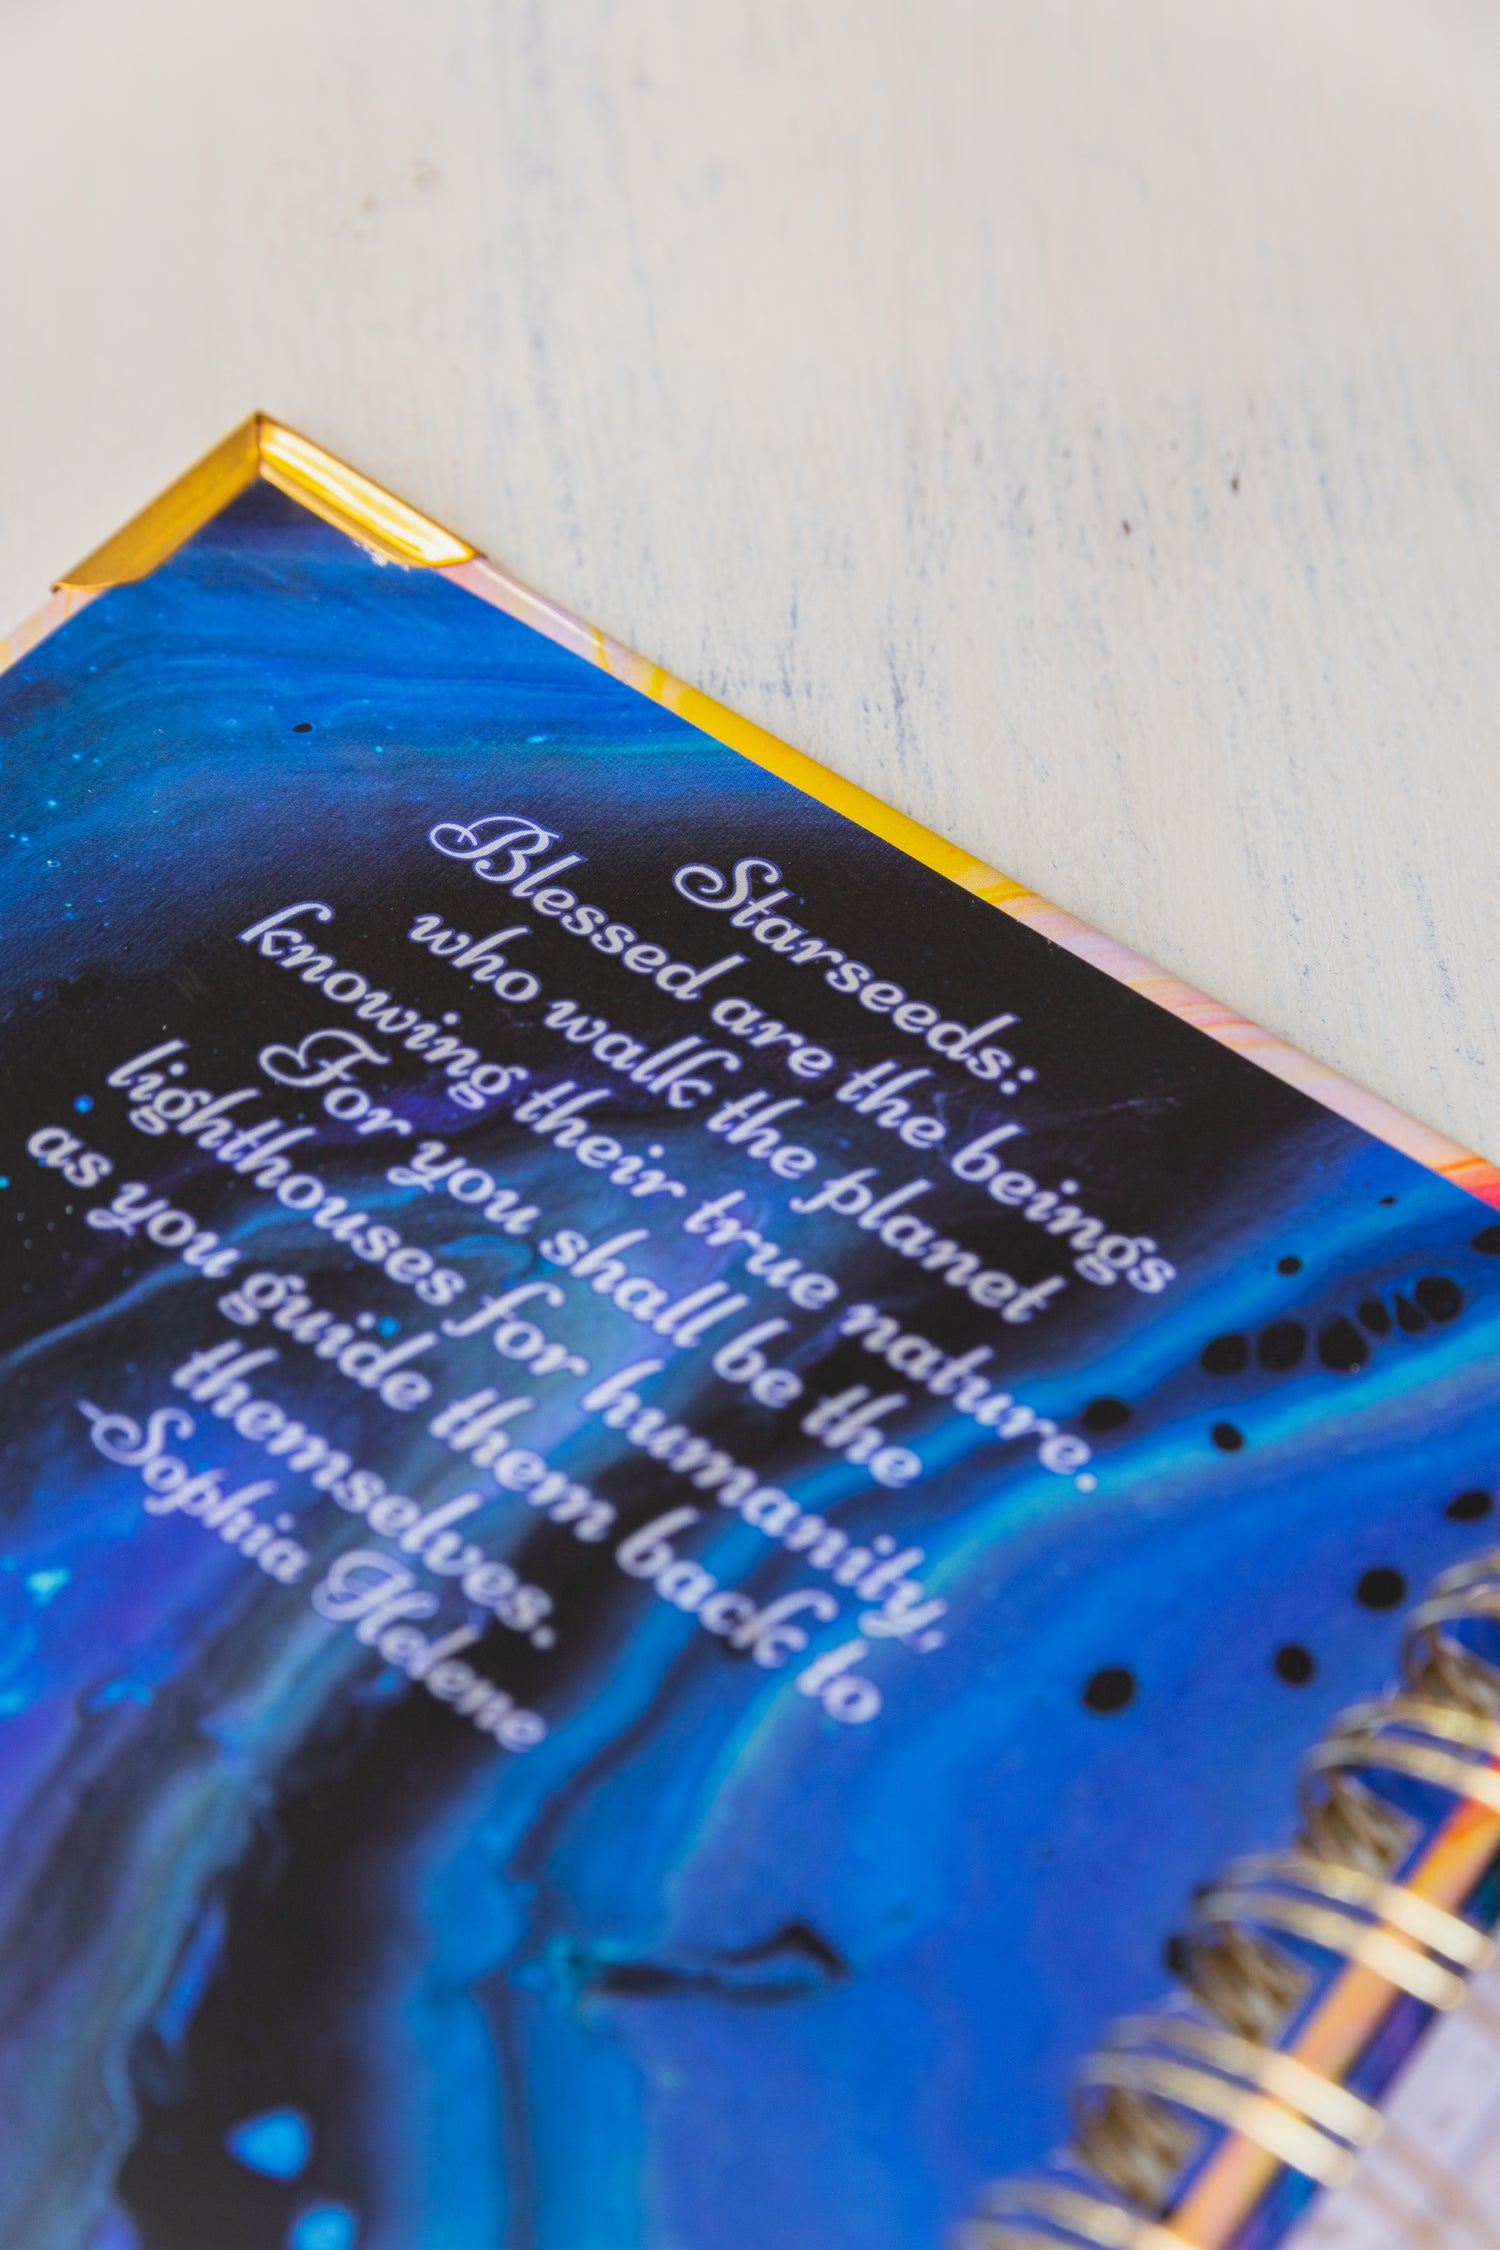 Starseeds:
Blessed are the beings
who walk the planet
knowing their true nature.
For you shall be the
lighthouses for humanity,
as you guide them back to
themselves.
-Sophia Helene